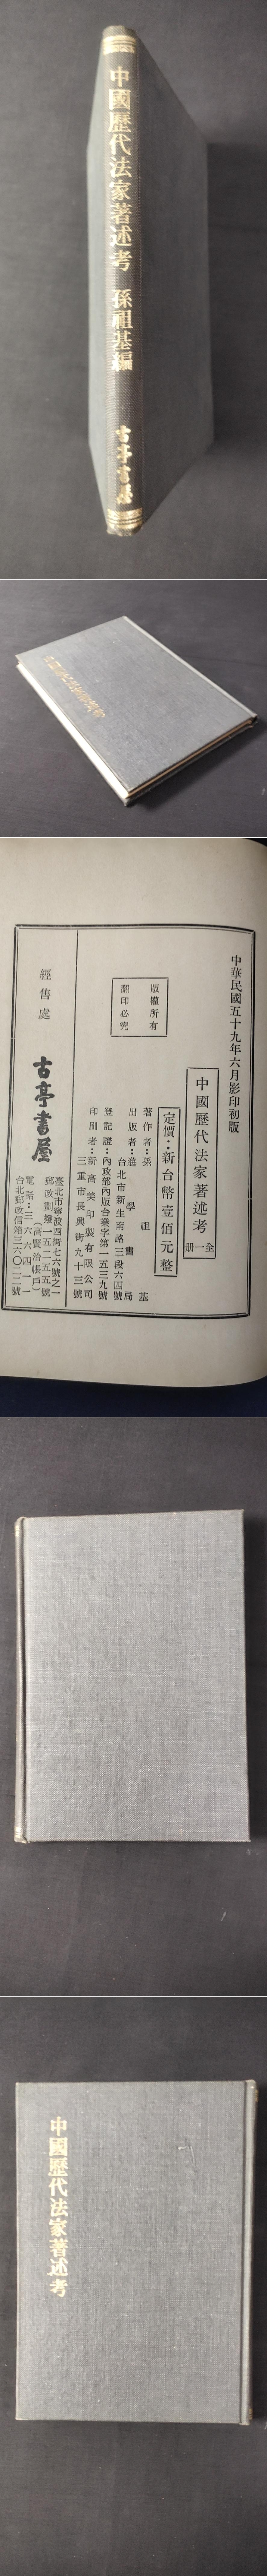 中國歷代法家著述考 孫祖基編 古亭書屋
中華民國五十九年六月影印初版
中國歷代法家著述考 全一册
定價：新台幣壹佰元整
版權所有
翻印必究
著作者：孫祖基
出版者：進學書局
台北市新生南路三段六四號
登記證：內政部內版台業字第一五三九號
印刷者：新高美印製有限公司
三重市長興街九十三號
經售處 古亭書屋
臺北市寧波西街七六號之一
郵政劃撥一五二五五號
（高賢治帳戶）
電話：三一六六四一
台北郵政信箱三六〇二二號
中國歷代法家著述考